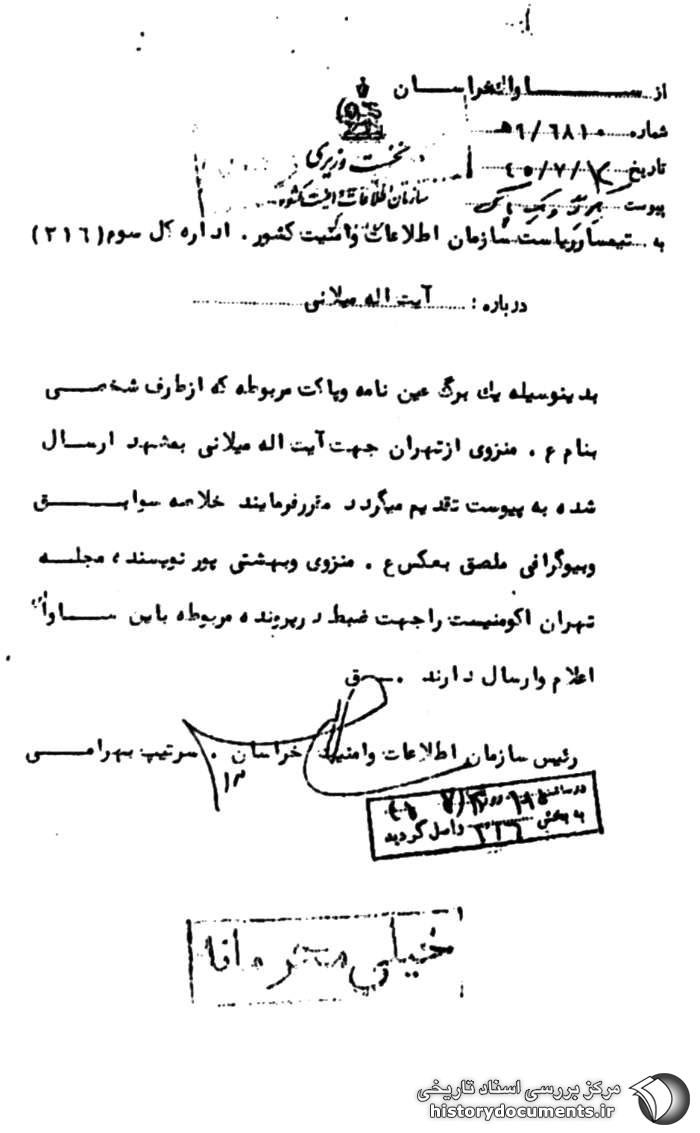 از ساواک خراسان
شماره ۹/۶۸۱۰ هـ
تاریخ ۴۵/۷/
پیوست برگ و یک پاکت
نخست وزیری
سازمان اطلاعات و امنیت کشور
به تیمسار ریاست سازمان اطلاعات وامنیت کشور . اداره کل سوم (۳۱۶)
درباره : آیت اله میلانی
بدینوسیله یك برگ عین نامه وپاکت مربوطه که ازطرف شخصی
بنام ع . منزوی ازتهران جهت آیت اله میلانی بمشهد ارسال
شده به پیوست تقدیم میگردد مقررفرمایند خلاصه سوابق
وبیوگرافی ملصق بعکس ع . منزوی وبهشتی پور نویسنده مجله
تهران اکومنیست راجهت ضبط درپرونده مربوطه باین ساواك
اعلام وارسال دارند . ق
رئیس سازمان اطلاعات وامنیت خراسان . سرتیپ بهرامی
۱۳
در ساعت روز
به بخش ۳۱۶ واصل گردید
خیلی محرمانه
مرکز بررسی اسناد تاریخی
historydocuments.ir